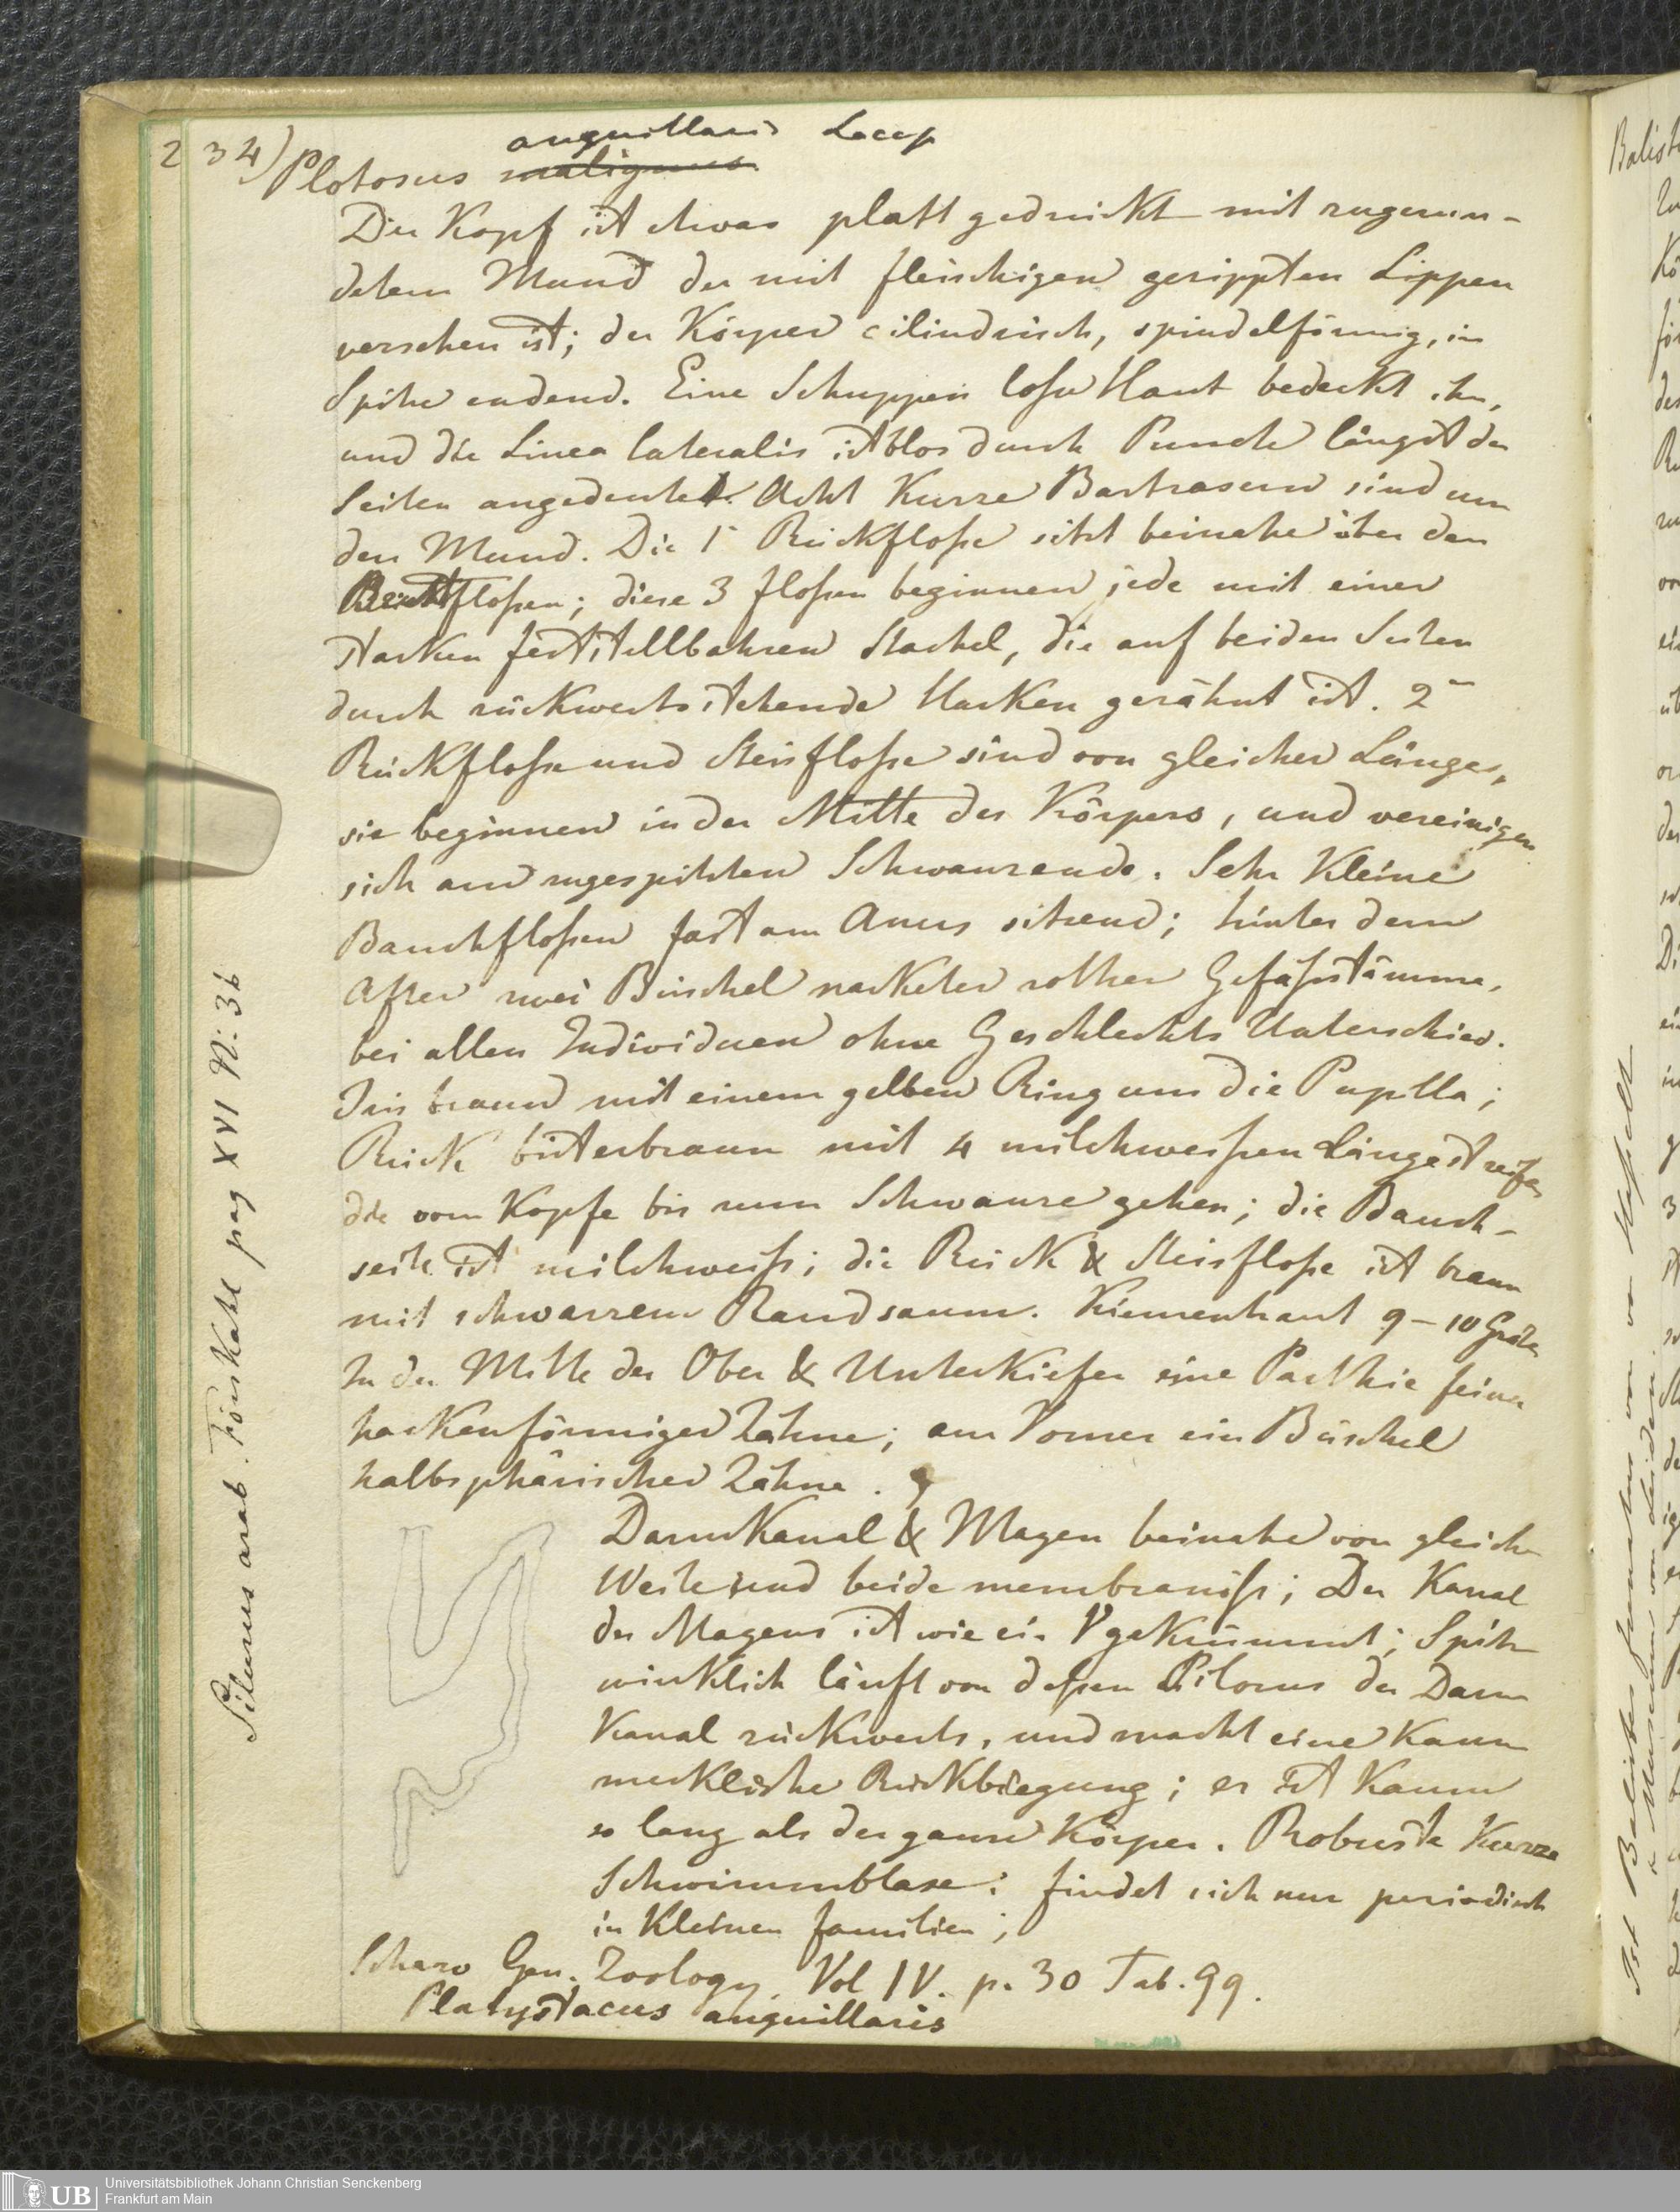 2 34) Plotosus malignus anguillaris Lacep
Der Kopf ist etwas platt gedruckt mit zugerun-
detem Mund der mit fleischigen gerippten Lippen
versehen ist; der Körper cilindrisch, spindelförmig, in
Spitze endend. Eine Schuppen lose Haut bedeckt ihn,
und die Linea lateralis ist blos durch Puncte längst der
Seiten angedeutet. Acht Kurze Bartfasern sind um
den Mund. Die 1 Rückflosse sitzt beinahe über den
Brustflossen; diese 3 flossen beginnen jede mit einem
starken feststellbahren Stachel, die auf beiden Seiten
durch rückwerts stehende Hacken gezähnt ist. 2
Rückflosse und Steisflosse sind von gleicher Länge,
sie beginnen in der Mitte des Körpers, und vereinigen
sich am zugespitzten Schwanzende. Sehr Kleine
Bauchflossen fast am Anus sitzend; hinter dem
After zwei Büschel nackter rother Gefässstämme,
bei allen Individuen ohne Geschlechts Unterschied.
Iris braun mit einem gelben Ring um die Pupilla;
Rück bisterbraun mit 4 milchweissen Längestreifen
die vom Kopfe bis zum Schwanze gehen; die Bauch-
seite ist milchweiss; die Rück & Steisflosse ist braun
mit schwarzem Randsaum. Kiemenhaut 9-10 Gräten
In der Mitte der Ober & Unterkiefer eine Parthie feiner
hackenförmiger Zähne; am Vomer ein Büschel
halbsphärischer Zähne.
Darmkanal & Magen beinahe von gleicher
Weite sind beide membranös; Der Kanal
des Magens ist wie ein V gekrümmt; Spitz
winklich läuft von dessen Pilorus der Darm
Kanal rückwerts, und macht eine Kaum
merkliche Rückbiegung; er ist Kaum
so lang als der ganze Körper. Robuste Kurze
Schwimmblase; findet sich nur periodisch
in Kleinen familien;
Schaw Gen. Zoology. Vol IV. p. 30 Tab. 99.
Platystacus anguillaris
Silurus arab. Forskahl pag XVI N: 36
Ist Balistes von von